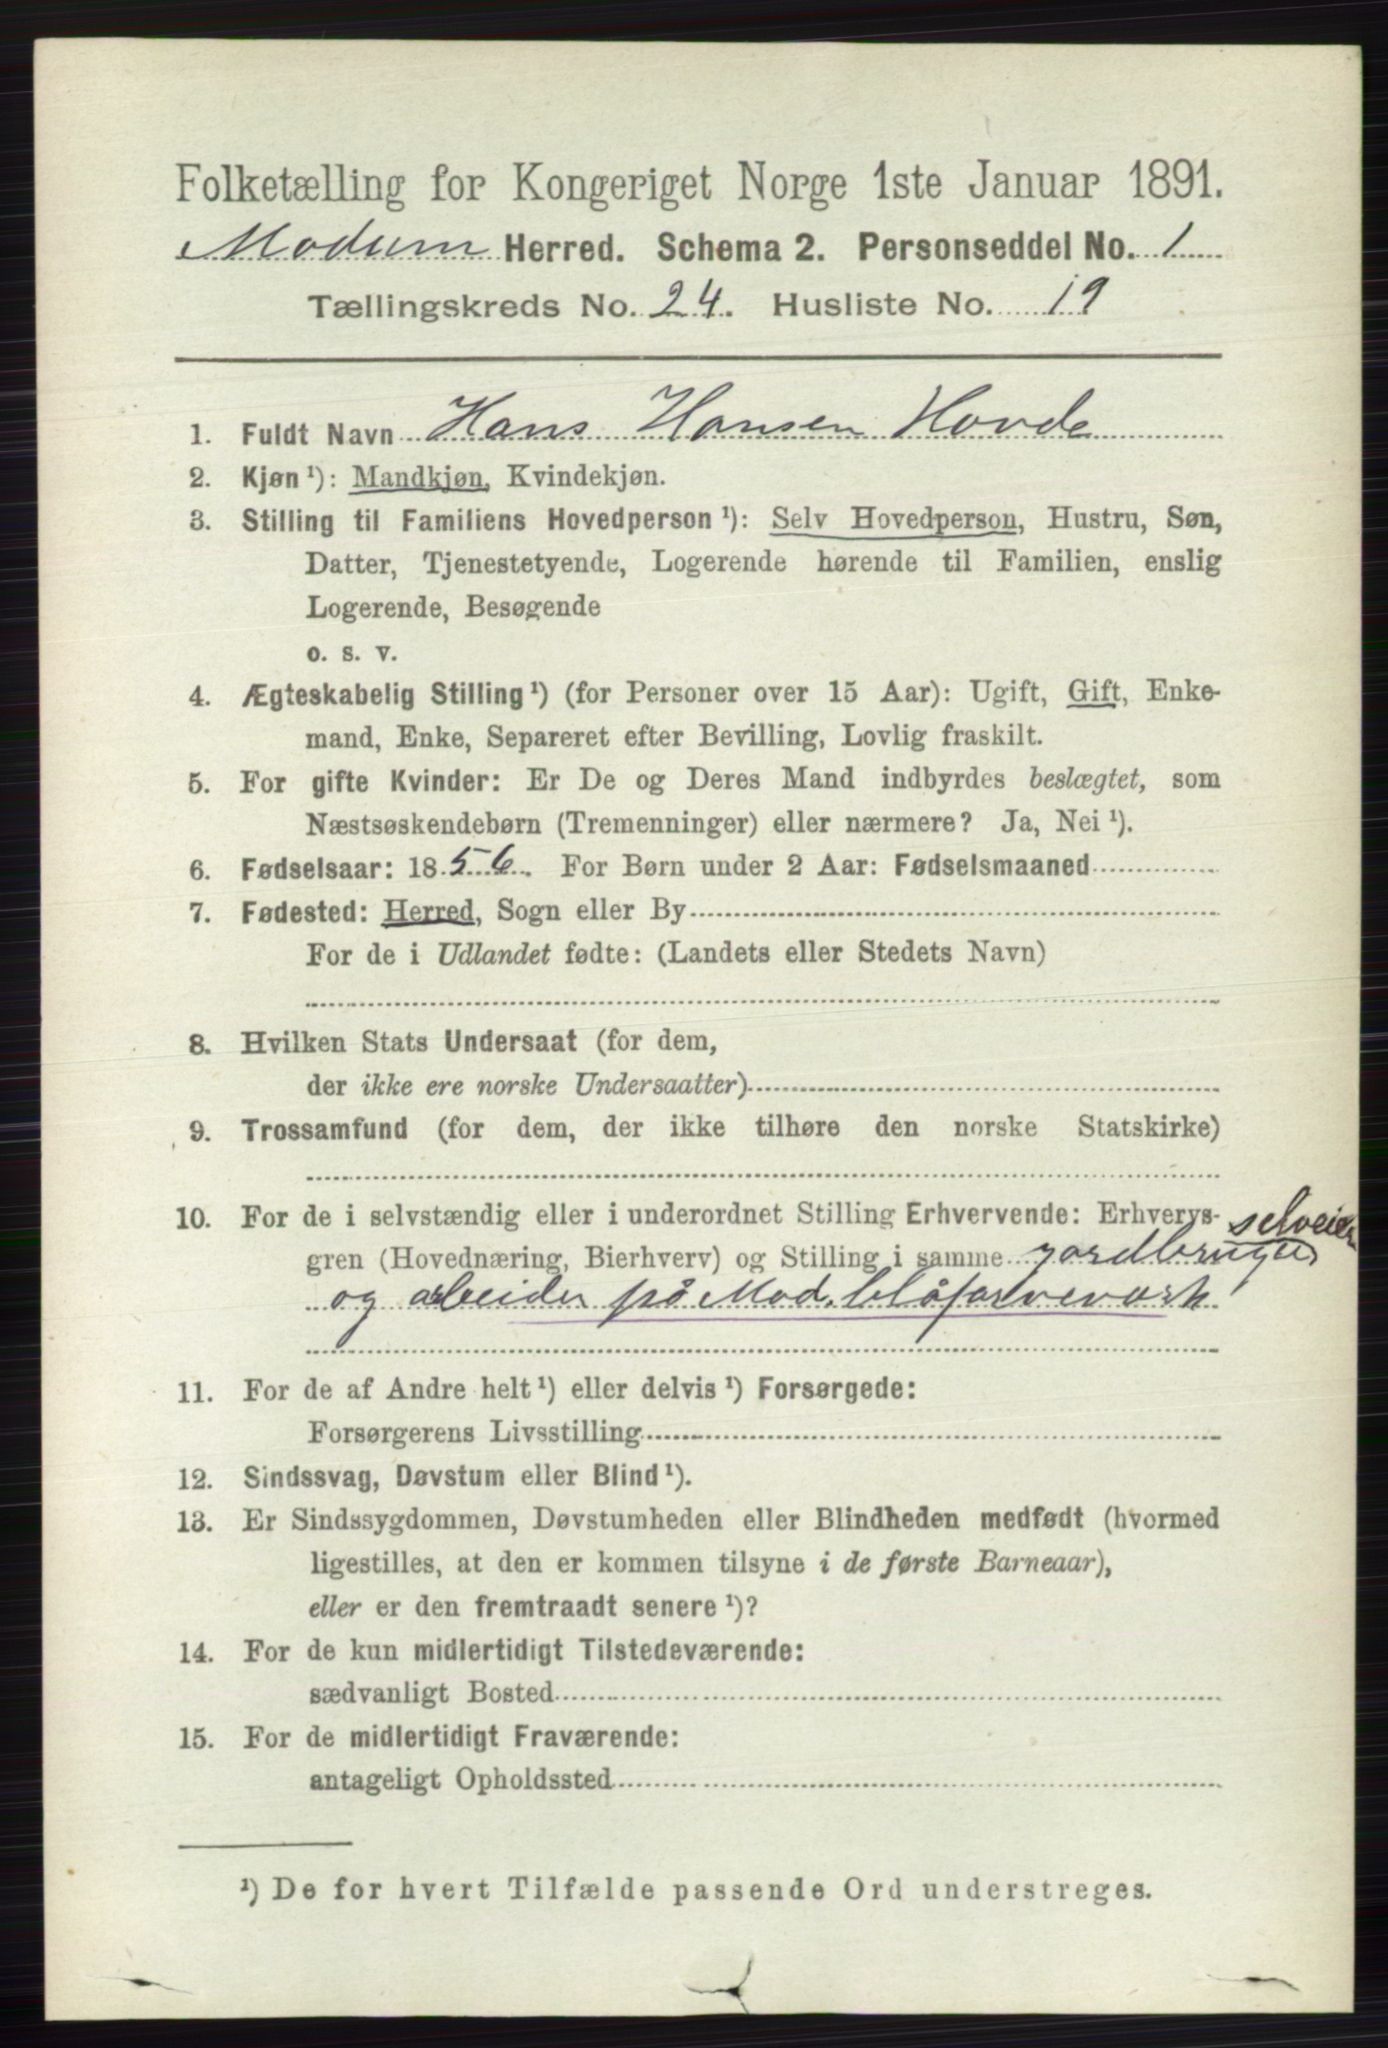 Folketælling for Kongeriget Norge 1ste Januar 1891.
Modum Herred. Schema 2. Personseddel No. 1
Tællingskreds No. 24. Husliste No. 19
1. Fuldt Navn Hans Hansen Hovde
2. Kjøn ¹): Mandkjøn, Kvindekjøn.
3. Stilling til Familiens Hovedperson ¹): Selv Hovedperson, Hustru, Søn,
Datter, Tjenestetyende, Logerende hørende til Familien, enslig
Logerende, Besøgende
o. s. v.
4. Ægteskabelig Stilling ¹) (for Personer over 15 Aar): Ugift, Gift, Enke-
mand, Enke, Separeret efter Bevilling, Lovlig fraskilt.
5. For gifte Kvinder: Er De og Deres Mand indbyrdes beslægtet, som
Næstsøskendebørn (Tremenninger) eller nærmere? Ja, Nei ¹).
6. Fødselsaar: 1856. For Børn under 2 Aar: Fødselsmaaned
7. Fødested: Herred, Sogn eller By
For de i Udlandet fødte: (Landets eller Stedets Navn)
8. Hvilken Stats Undersaat (for dem,
der ikke ere norske Undersaatter)
9. Trossamfund (for dem, der ikke tilhøre den norske Statskirke)
10. For de i selvstændig eller i underordnet Stilling Erhvervende: Erhvervs-
selveier
gren (Hovednæring, Bierhverv) og Stilling i samme gardbruger
og arbeider på Mod. blåfarveverk
11. For de af Andre helt ¹) eller delvis ¹) Forsørgede:
Forsørgerens Livsstilling
12. Sindssvag, Døvstum eller Blind ¹).
13. Er Sindssygdommen, Døvstumheden eller Blindheden medfødt (hvormed
ligestilles, at den er kommen tilsyne i de første Barneaar),
eller er den fremtraadt senere ¹)?
14. For de kun midlertidigt Tilstedeværende:
sædvanligt Bosted
15. For de midlertidigt Fraværende:
antageligt Opholdssted
¹) De for hvert Tilfælde passende Ord understreges.